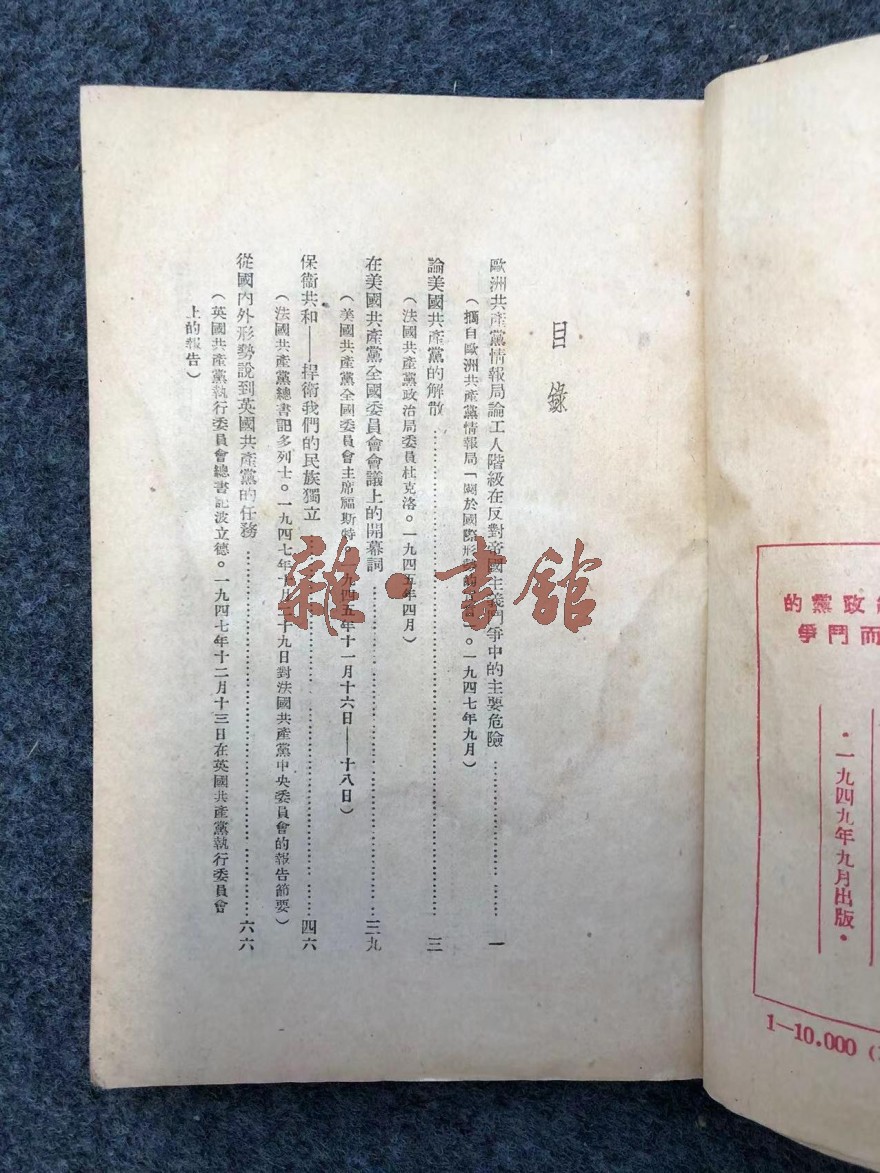 目錄
歐洲共產黨情報局論工人階級在反對帝國主義鬥爭中的主要危險……一
(摘自歐洲共產黨情報局「關於國際形勢的宣言」。一九四七年九月)
論美國共產黨的解散……三
(法國共產黨政治局委員杜克洛。一九四五年四月)
在美國共產黨全國委員會會議上的開幕詞……三九
(美國共產黨全國委員會主席福斯特。一九四五年十一月十六日——十八日)
保衛共和——捍衛我們的民族獨立……四六
(法國共產黨總書記多列士。一九四七年十月二十九日對法國共產黨中央委員會的報告節要)
從國內外形勢說到英國共產黨的任務……六六
(英國共產黨執行委員會總書記波立德。一九四七年十二月十三日在英國共產黨執行委員會
上的報告)
雜·書館
政黨的
而鬥爭
·一九四九年九月出版·
1—10.000